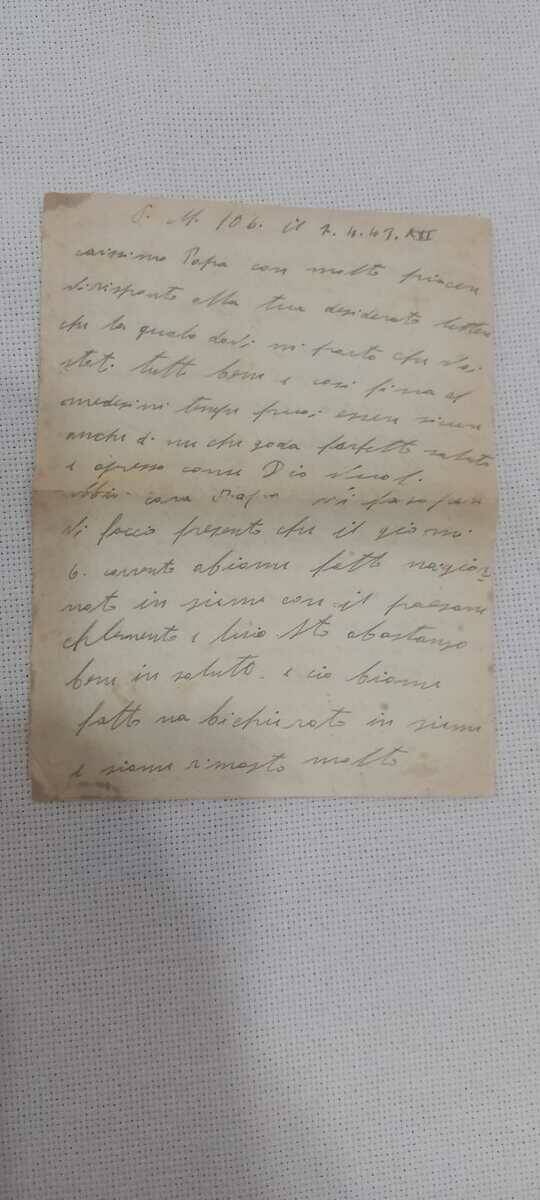 P. M. 106. il 7.4.43. XXI
carissimo Papa con molto piacere
vi risponto alla tua desiderato lettera
che la quale dove mi parto che voi
state tutti bene e cosi fina al
medesimi tempe puoi essere sicuro
anche di me che goda parfetto saluto
e apresso come Dio vuol.
cara Papa vi
vi faccio presento che il giorni
6. corrento abiamo fatto na
nato in sieme con il paesano
chlemento e sto abastanzo
bene in saluto. e cio biamo
fatto na bichierato in sieme
e siamo rimasto molto